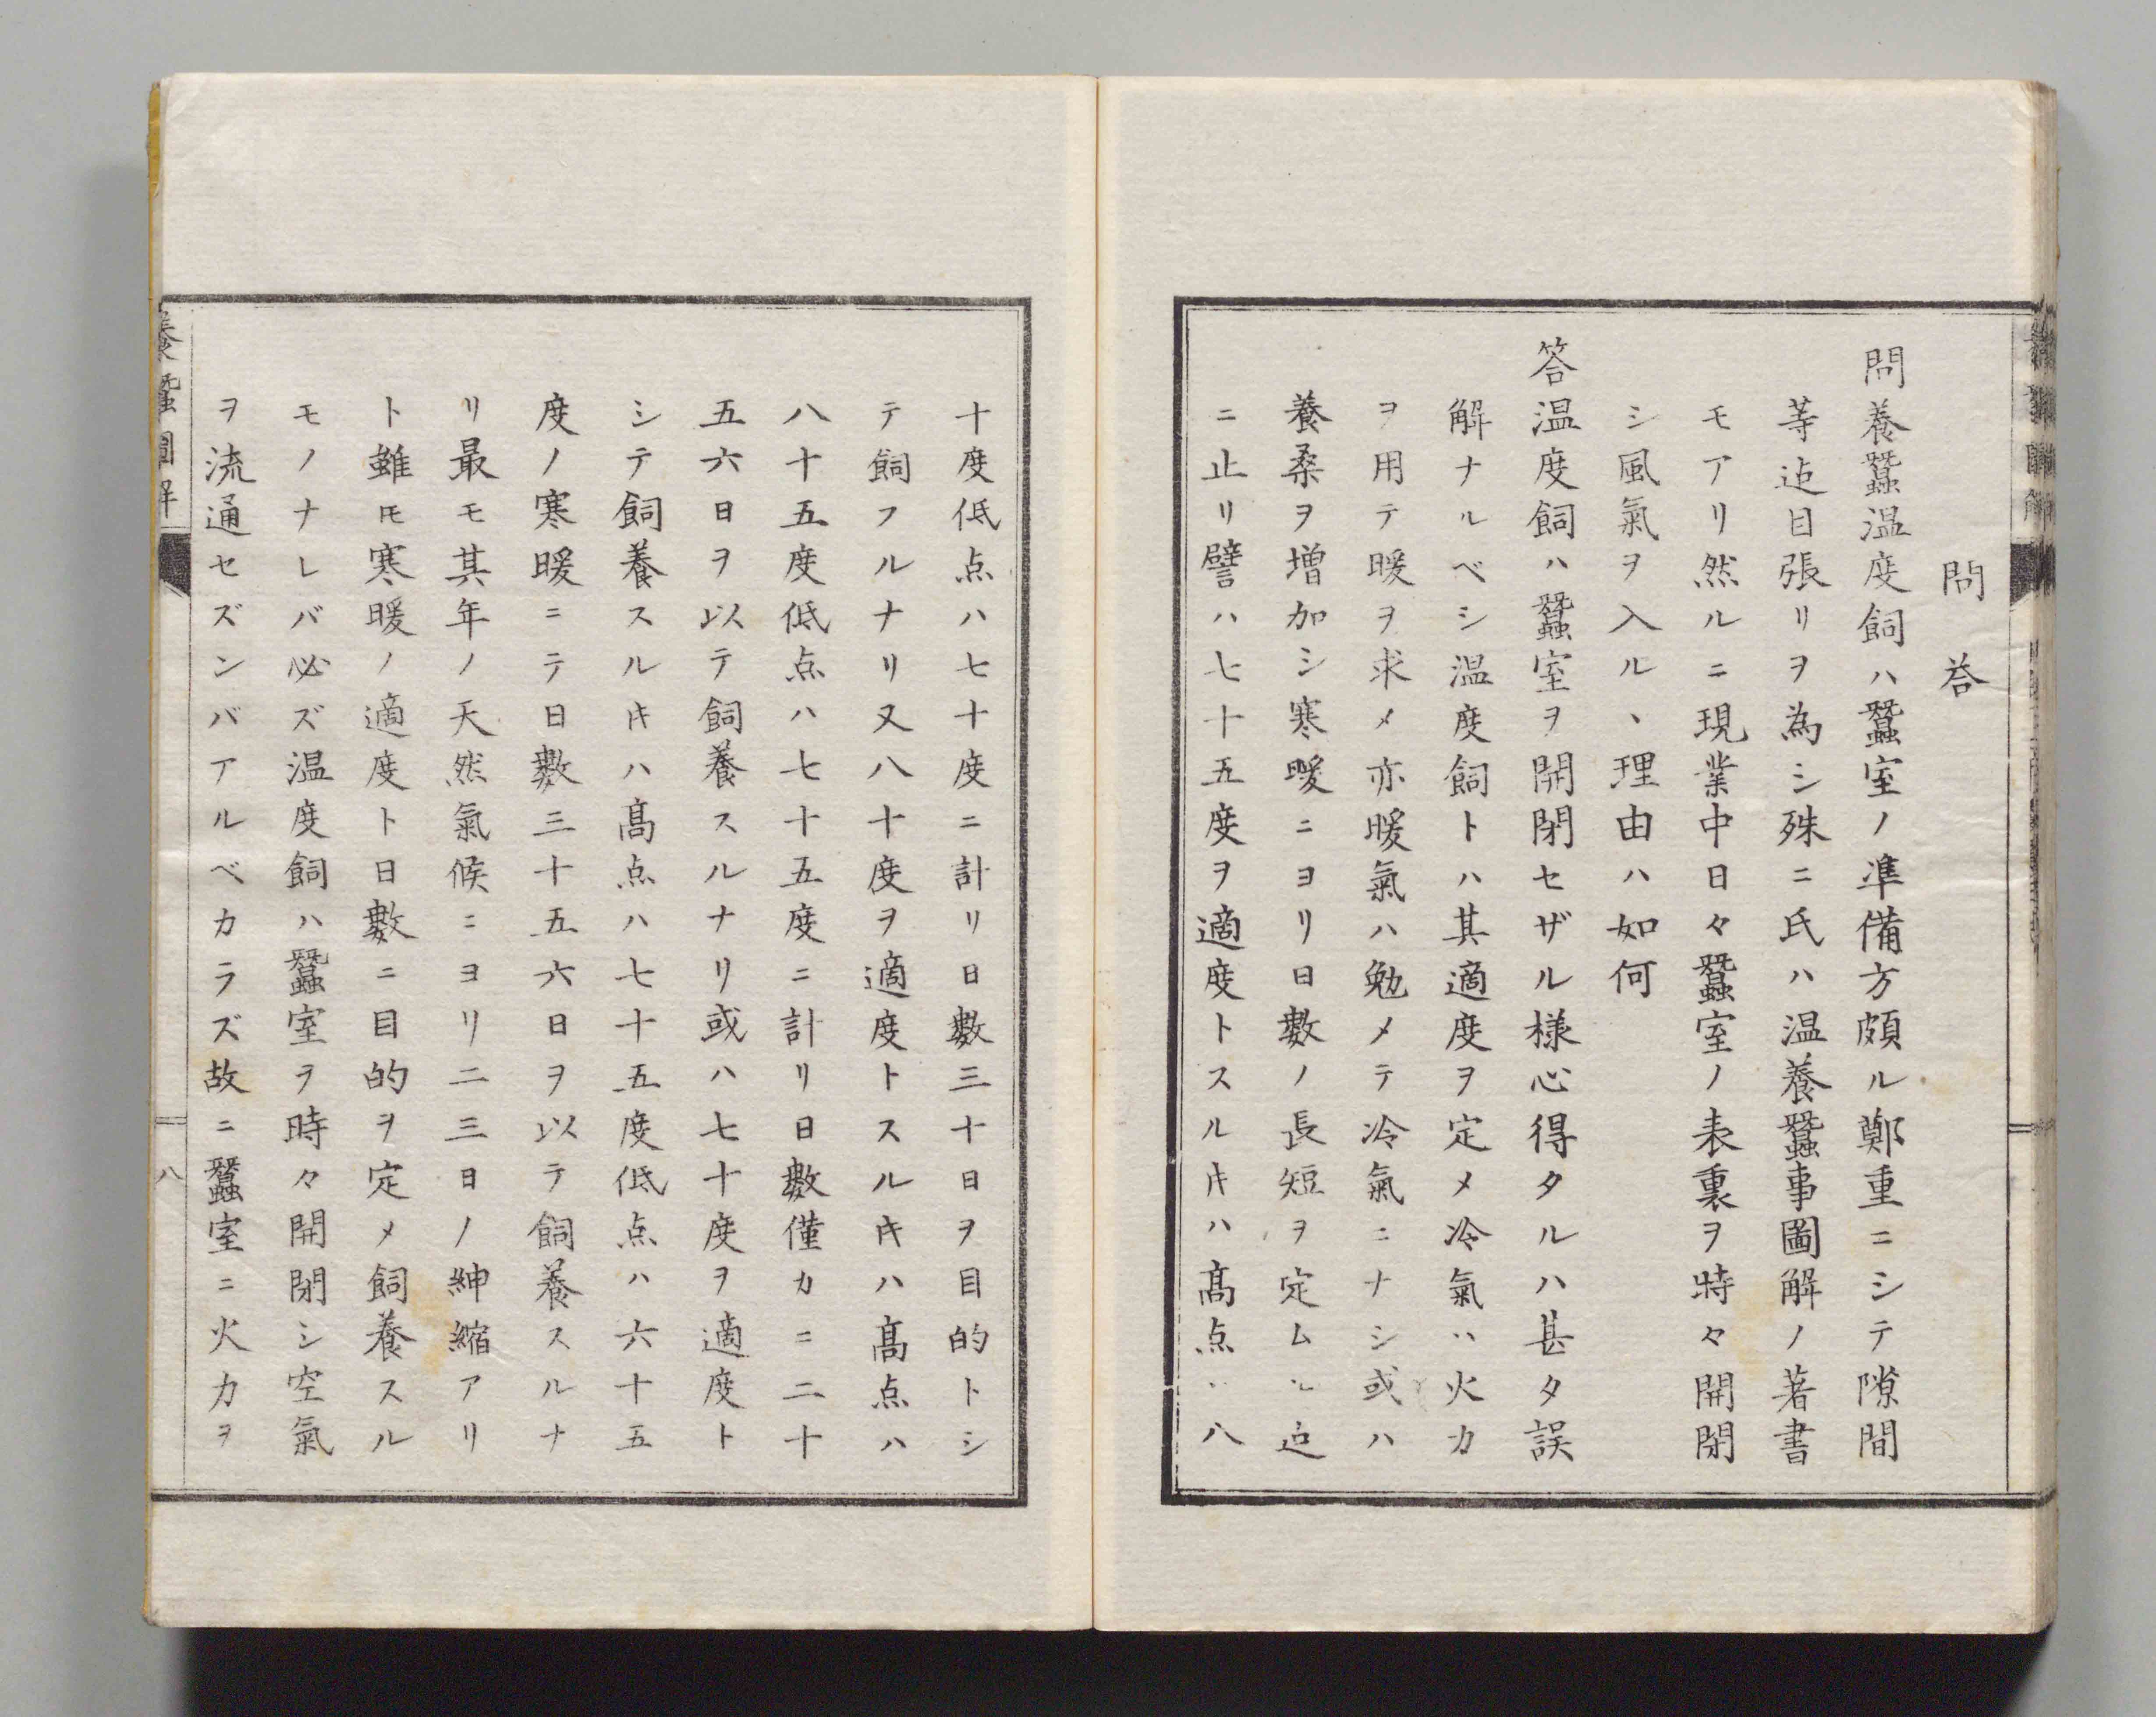 問答
問養蠶温度飼ハ蠶室ノ凖備方頗ル鄭重ニシテ隙間
等迠目張リヲ為シ殊ニ氏ハ温養蠶事圖解ノ著書
モアリ然ルニ現業中日々蠶室ノ表裏ヲ時々開閉
シ風氣ヲ入ルヽ理由ハ如何
答温度飼ハ蠶室ヲ開閉セザル様心得タルハ甚タ誤
解ナルベシ温度飼トハ其適度ヲ定メ冷氣ハ火力
ヲ用テ暖ヲ求メ亦暖氣ハ勉メテ冷氣ニナシ或ハ
養桑ヲ増加シ寒暖ニヨリ日數ノ長短ヲ定ムル迠
ニ止リ譬ハ七十五度ヲ適度トスルキハ髙点ハ八
十度低点ハ七十度ニ計リ日數三十日ヲ目的トシ
テ飼フルナリ又八十度ヲ適度トスルキハ髙点ハ
八十五度低点ハ七十五度ニ計リ日數僅カニ二十
五六日ヲ以テ飼養スルナリ或ハ七十度ヲ適度ト
シテ飼養スルキハ髙点ハ七十五度低点ハ六十五
度ノ寒暖ニテ日數三十五六日ヲ以テ飼養スルナ
リ最モ其年ノ天然氣候ニヨリ二三日ノ紳縮アリ
ト雖モ寒暖ノ適度ト日數ニ目的ヲ定メ飼養スル
モノナレバ必ズ温度飼ハ蠶室ヲ時々開閉シ空氣
ヲ流通セズンバアルベカラズ故ニ蠶室ニ火力ヲ
養蠶圖解
八